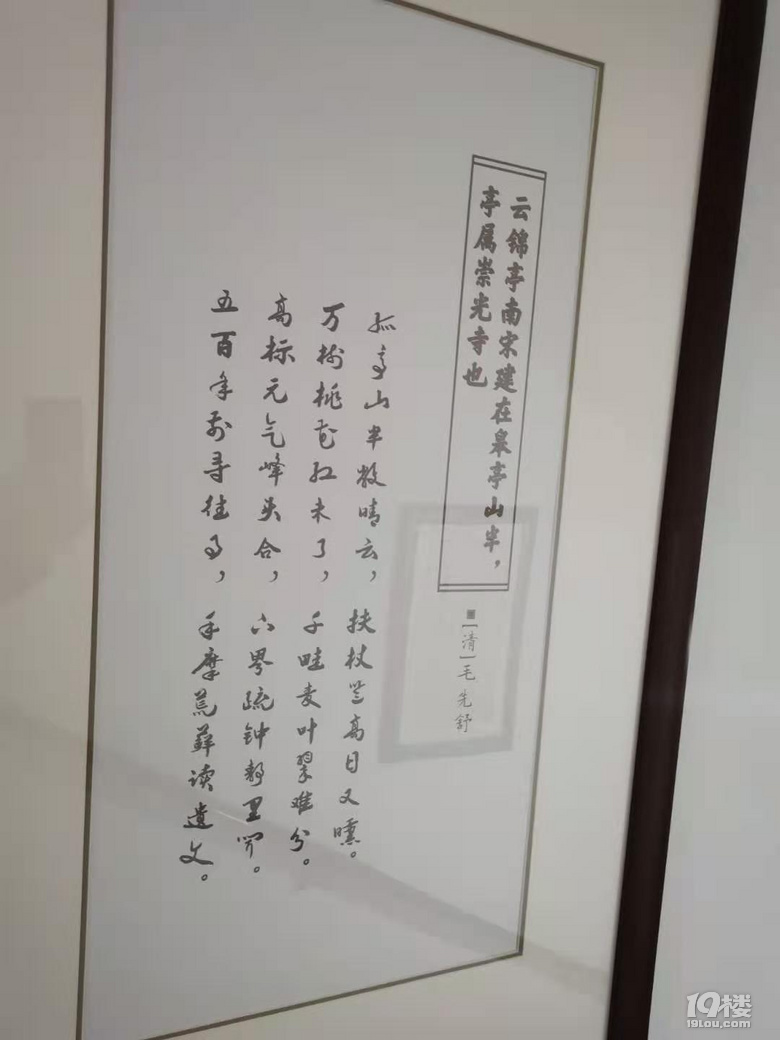 云锦亭南宋建在皋亭山半，
亭属崇光寺也
■[清]毛先舒
孤亭山半敞晴云，扶杖登高日又曛。
万树桃花红未了，千畦麦叶翠难分。
高标元气峰头合，六界疏钟静里闻。
五百年前寻往事，手摩荒藓读遗文。
19楼
19lou.com